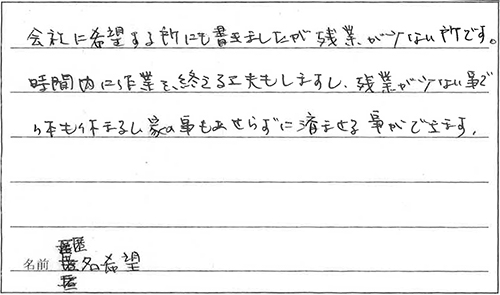 会社に希望する所にも書きましたが残業が少ない所です。
時間内に作業を終える工夫もしますし、残業が少ない事で
体も休まるし家の事もあせらずに済ませる事ができます。
名前 匿名希望